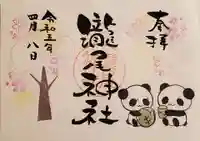 奉拝
瀧尾神社
令和三年
四月八日